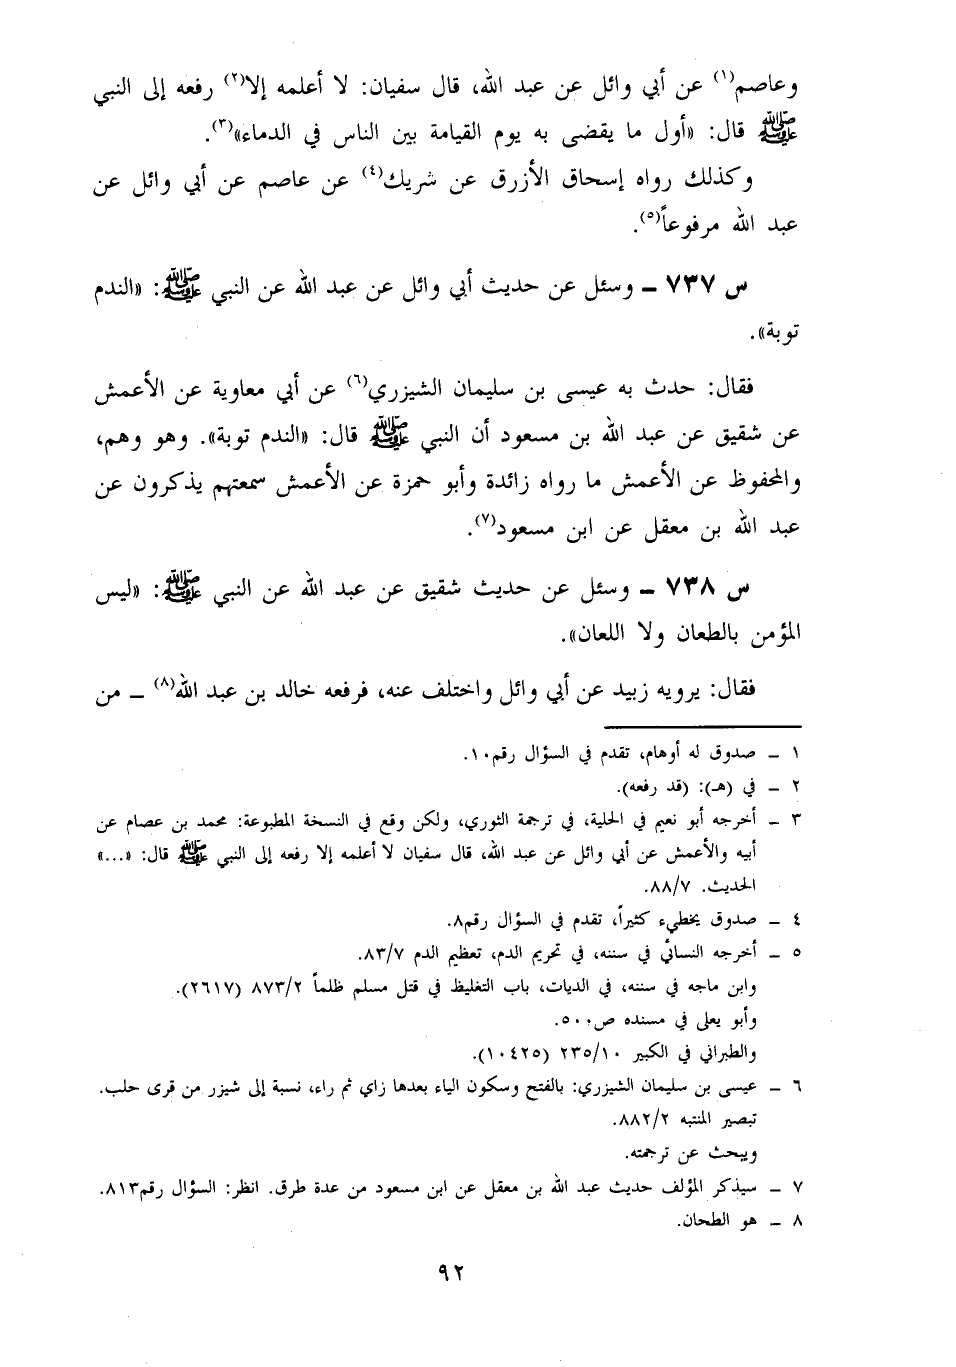 وعاصم(١) عن أبي وائل عن عبد الله، قال سفيان: لا أعلمه إلا(٢) رفعه إلى النبي
ﷺ قال: «أول ما يقضى به يوم القيامة بين الناس في الدماء»(٣).
وكذلك رواه إسحاق الأزرق عن شريك(٤) عن عاصم عن أبي وائل عن
عبد الله مرفوعاً(٥).
س ٧٣٧ – وسئل عن حديث أبي وائل عن عبد الله عن النبي ﷺ: «الندم
توبة».
فقال: حدث به عيسى بن سليمان الشيزري(٦) عن أبي معاوية عن الأعمش
عن شقيق عن عبد الله بن مسعود أن النبي ﷺ قال: «الندم توبة». وهو وهم،
والمحفوظ عن الأعمش ما رواه زائدة وأبو حمزة عن الأعمش سمعتهم يذكرون عن
عبد الله بن معقل عن ابن مسعود(٧).
س ٧٣٨ – وسئل عن حديث شقيق عن عبد الله عن النبي ﷺ: «ليس
المؤمن بالطعان ولا اللعان».
فقال: يرويه زبيد عن أبي وائل واختلف عنه، فرفعه خالد بن عبد الله(٨) – من
١ – صدوق له أوهام، تقدم في السؤال رقم١٠.
٢ – في (هـ): (قد رفعه).
٣ – أخرجه أبو نعيم في الحلية، في ترجمة الثوري، ولكن وقع في النسخة المطبوعة: محمد بن عصام عن
أبيه والأعمش عن أبي وائل عن عبد الله، قال سفيان لا أعلمه إلا رفعه إلى النبي ﷺ قال: «...»
الحديث. ٨٨/٧.
٤ – صدوق يخطيء كثيراً، تقدم في السؤال رقم٨.
٥ – أخرجه النسائي في سننه، في تحريم الدم، تعظيم الدم ٨٣/٧.
وابن ماجه في سننه، في الديات، باب التغليظ في قتل مسلم ظلماً ٨٧٣/٢ (٢٦١٧).
وأبو يعلى في مسنده ص٥٠٠.
والطبراني في الكبير ٢٣٥/١٠ (١٠٤٢٥).
٦ – عيسى بن سليمان الشيزري: بالفتح وسكون الياء بعدها زاي ثم راء، نسبة إلى شيزر من قرى حلب.
تبصير المنتبه ٨٨٢/٢.
ويبحث عن ترجمته.
٧ – سيذكر المؤلف حديث عبد الله بن معقل عن ابن مسعود من عدة طرق. انظر: السؤال رقم٨١٣.
٨ – هو الطحان.
٩٢